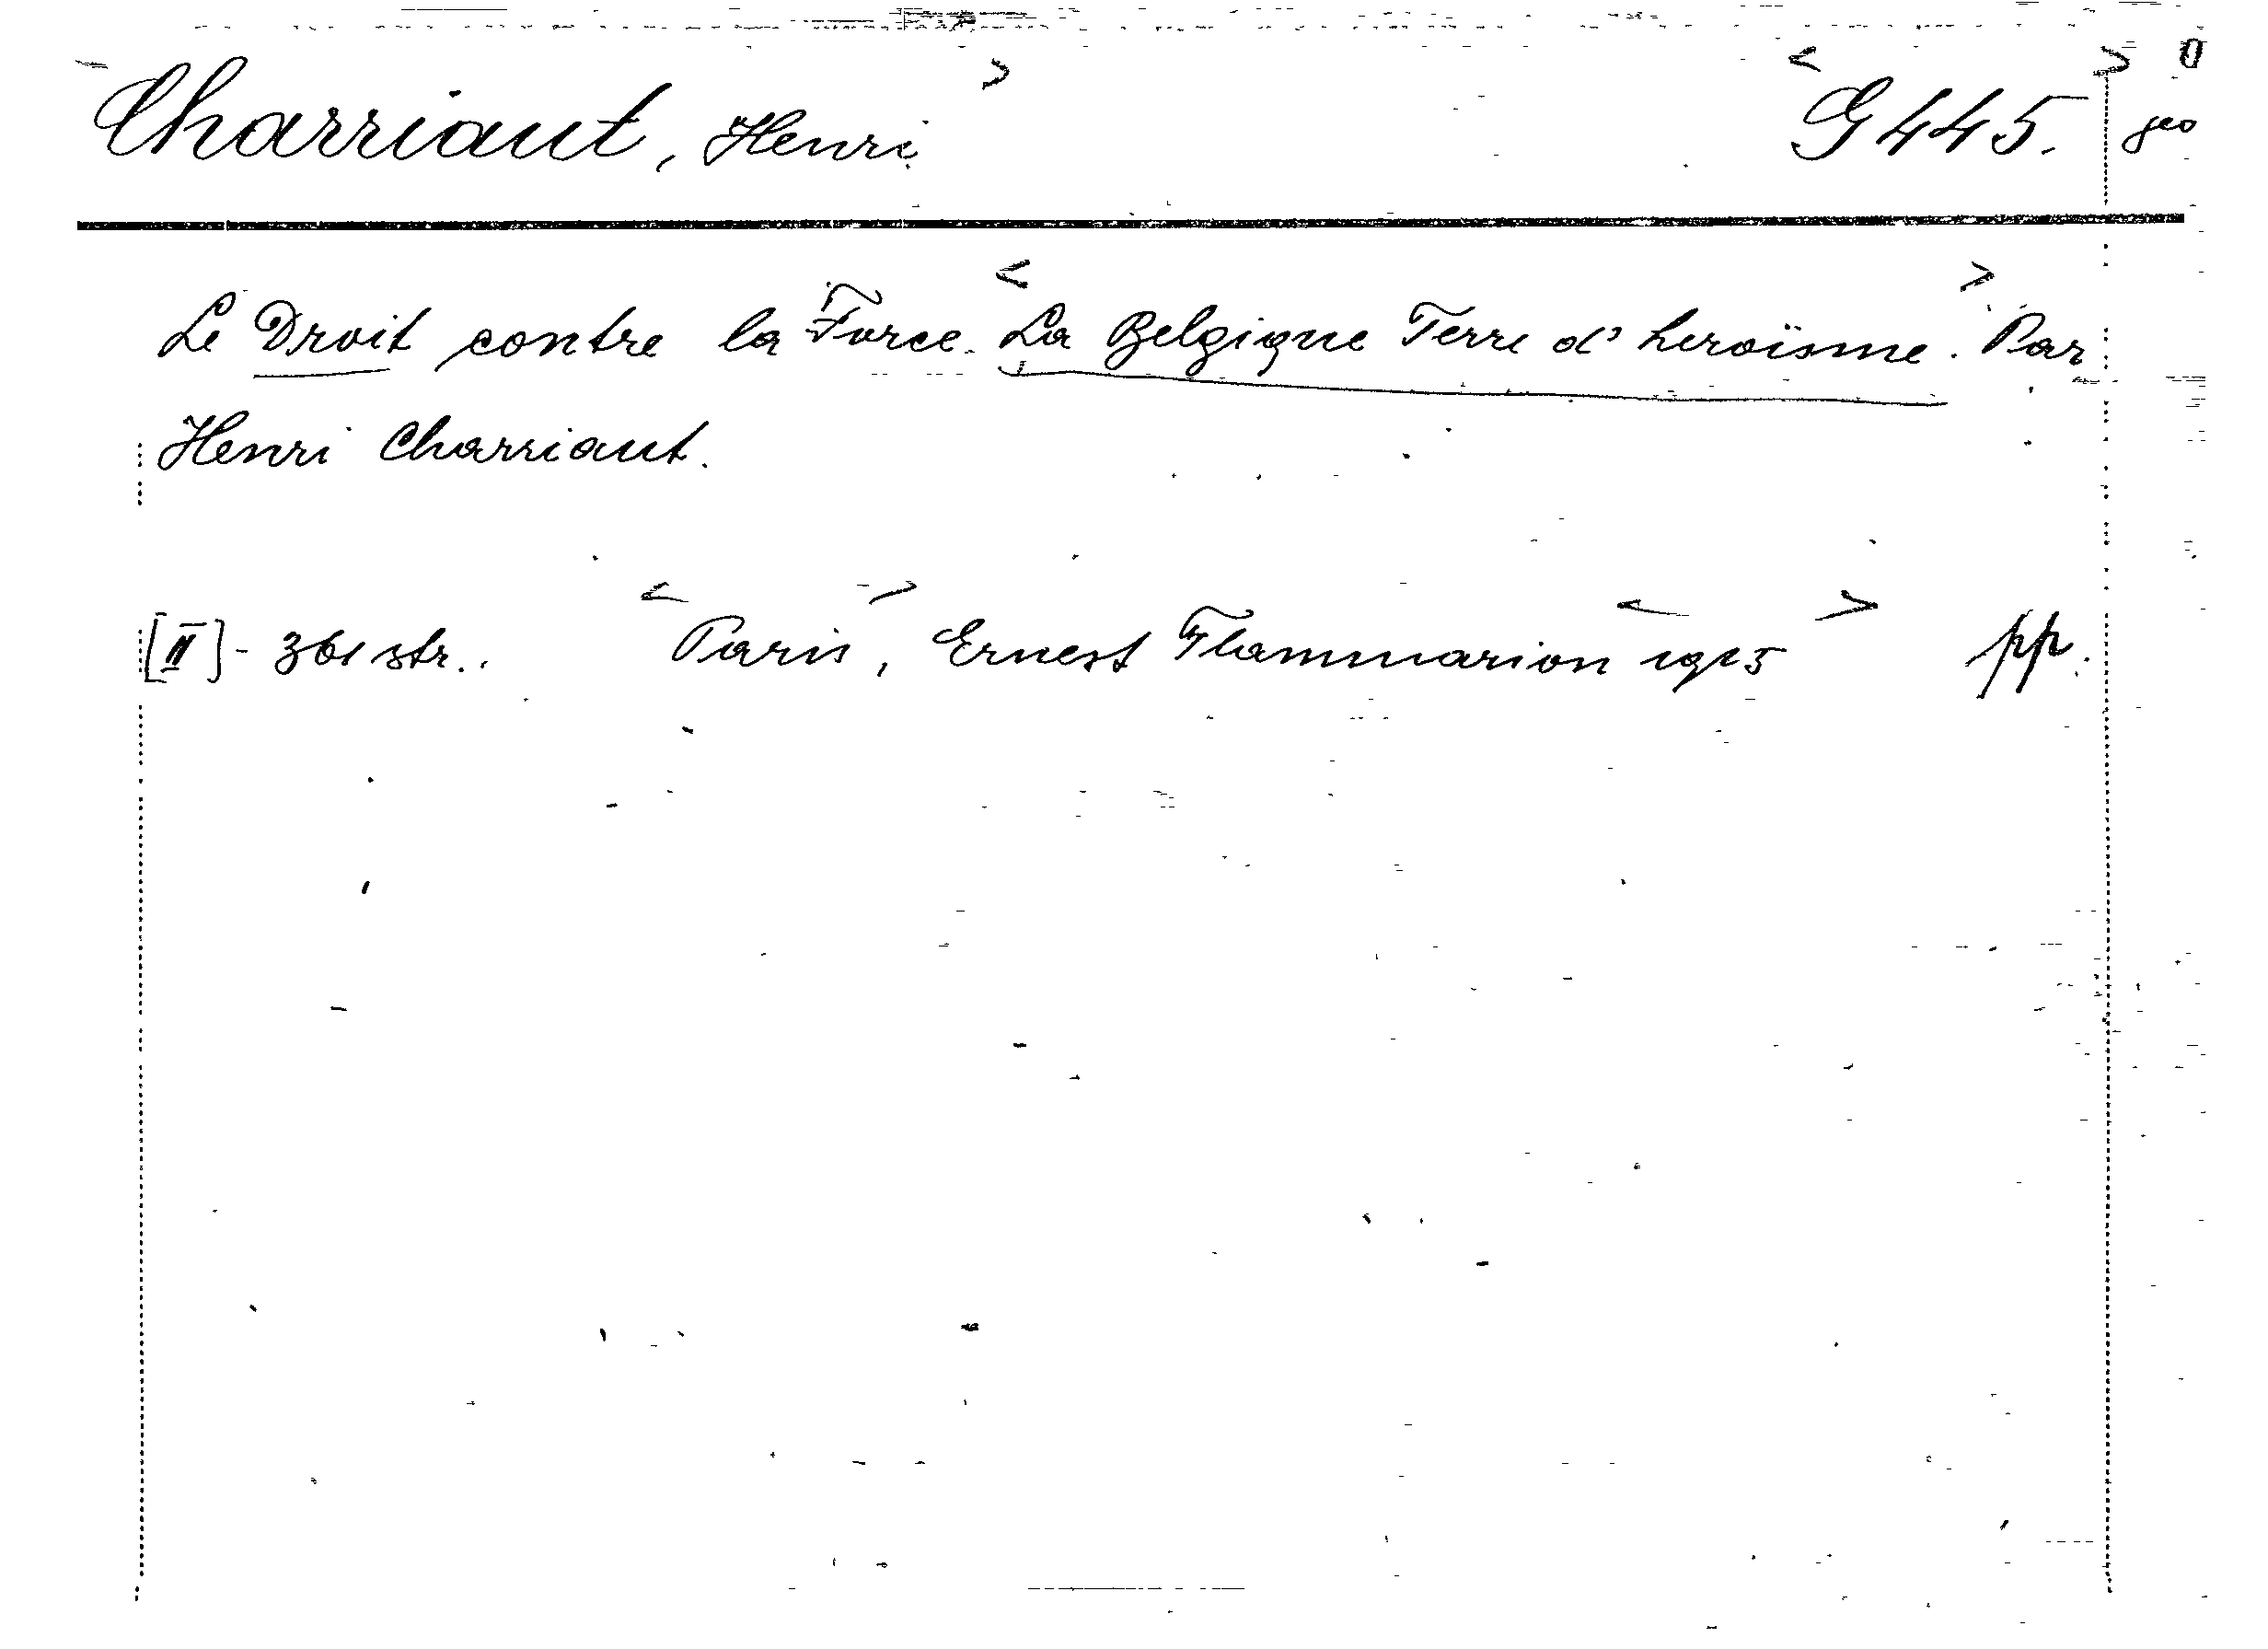 Charriaut, Henri G 445. geo
Le Droit contre la Force. La Belgique Terre d'heroïsme. Par
Henri Charriaut.
[II] - 361 str.. Paris, Ernest Flammarion 1915 pp.